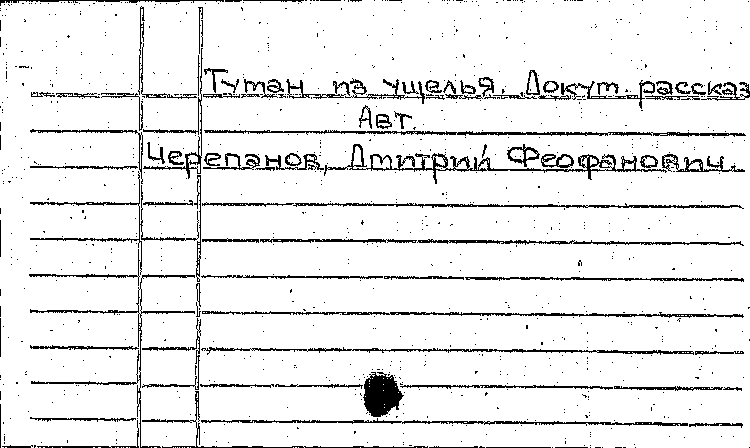 Туман из ущелья. Докум. рассказ
Авт.
Черепанов, Дмитрий Феофанович.